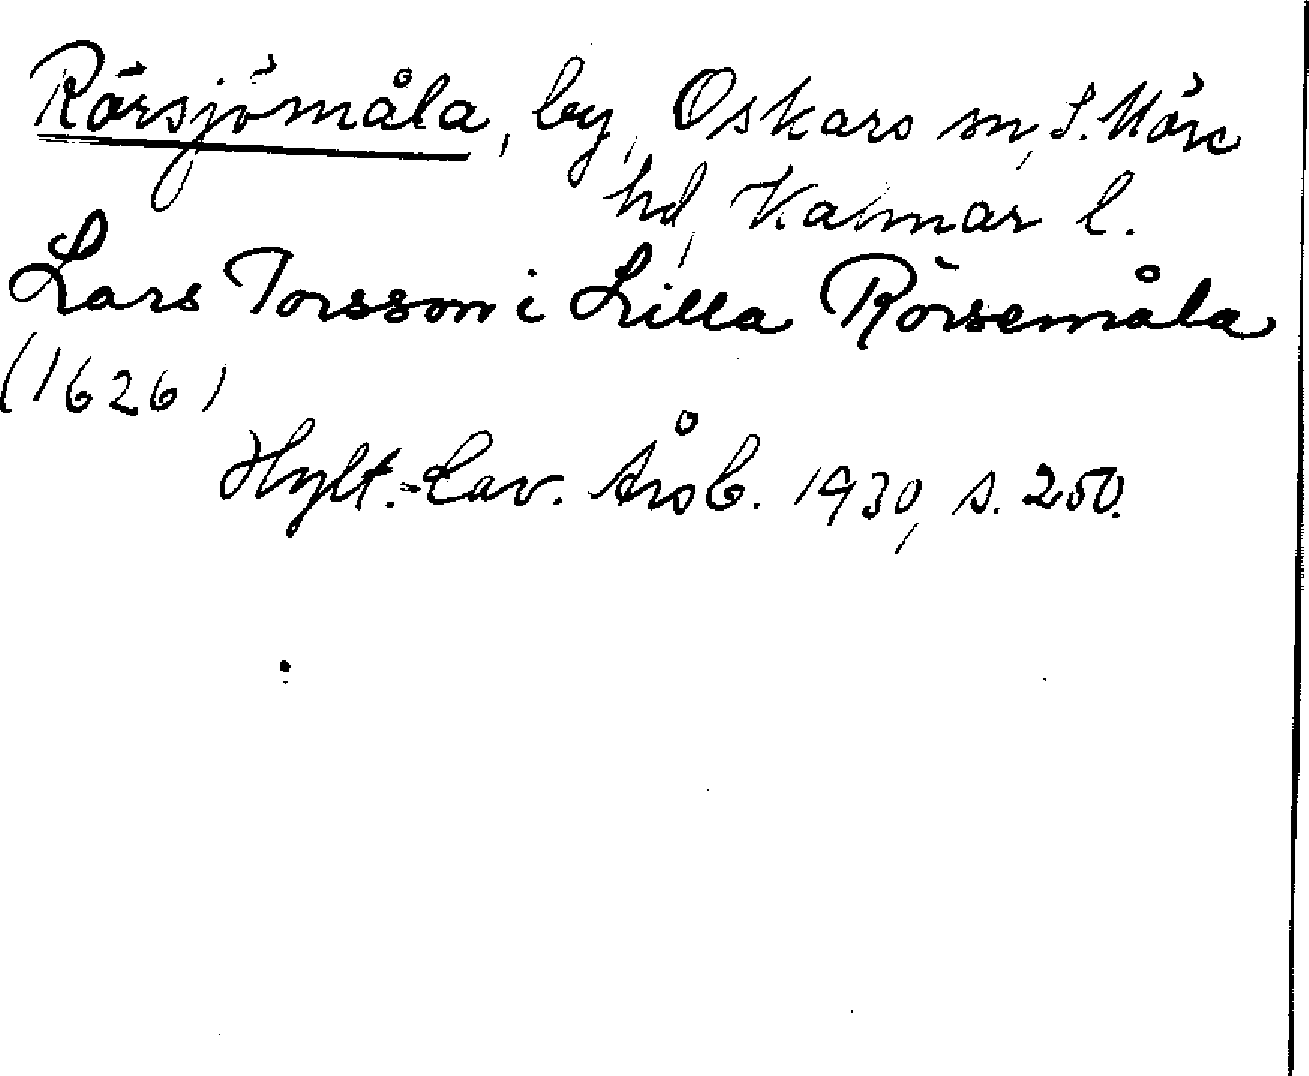 Rörsjömåla, by, Oskars sn, S. Möre
hd, Kalmar l.
Lars Torsson i Lilla Rörsemåla
(1626)
Hylt.-Cav. Årsb. 1930, s. 250.